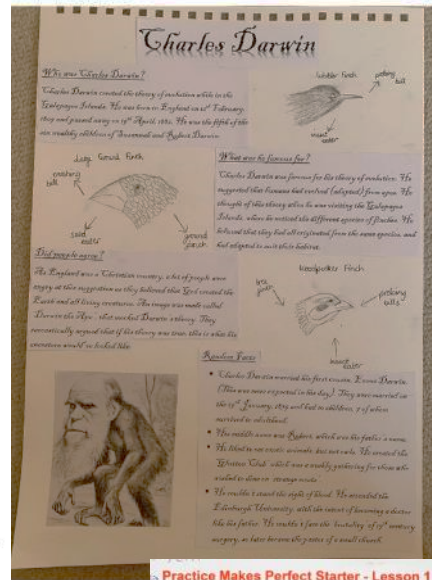 Charles Darwin
Who was Charles Darwin?
Charles Darwin created the theory of evolution while in the
Galapagos Islands. He was born in England on 12th February,
1809 and passed away on 19th April, 1882. He was the fifth of the
six wealthy children of Susannah and Robert Darwin.
Warbler Finch
probing
bill
insect
eater
Large Ground Finch
crushing
bill
seed
eater
ground
finch
What was he famous for?
Charles Darwin was famous for his theory of evolution. He
suggested that humans had evolved (adapted) from apes. He
thought of this theory when he was visiting the Galapagos
Islands, where he noticed the different species of finches. He
believed that they had all originated from the same species, and
had adapted to suit their habitat.
Did people agree?
As England was a Christian country, a lot of people were
angry at this suggestion as they believed that God created the
Earth and all living creatures. An image was made called
'Darwin the Ape', that mocked Darwin's theory. They
sarcastically argued that if his theory was true, this is what his
ancestors would've looked like.
Woodpecker Finch
tree
finch
probing
bills
insect
eater
Random Facts
Charles Darwin married his first cousin, Emma Darwin.
(This was very expected in the day). They were married on
the 29th January, 1839 and had 10 children, 7 of whom
survived to adulthood.
His middle name was Robert, which was his father's name.
He liked to eat exotic animals, but not owls. He created the
'Glutton Club' which was a weekly gathering for those who
wished to dine on strange meats.
He couldn't stand the sight of blood. He attended the
Edinburgh University, with the intent of becoming a doctor
like his father. He couldn't face the brutality of 19th century
surgery, so later became the
of a small church.
Practice Makes Perfect Starter - Lesson 1